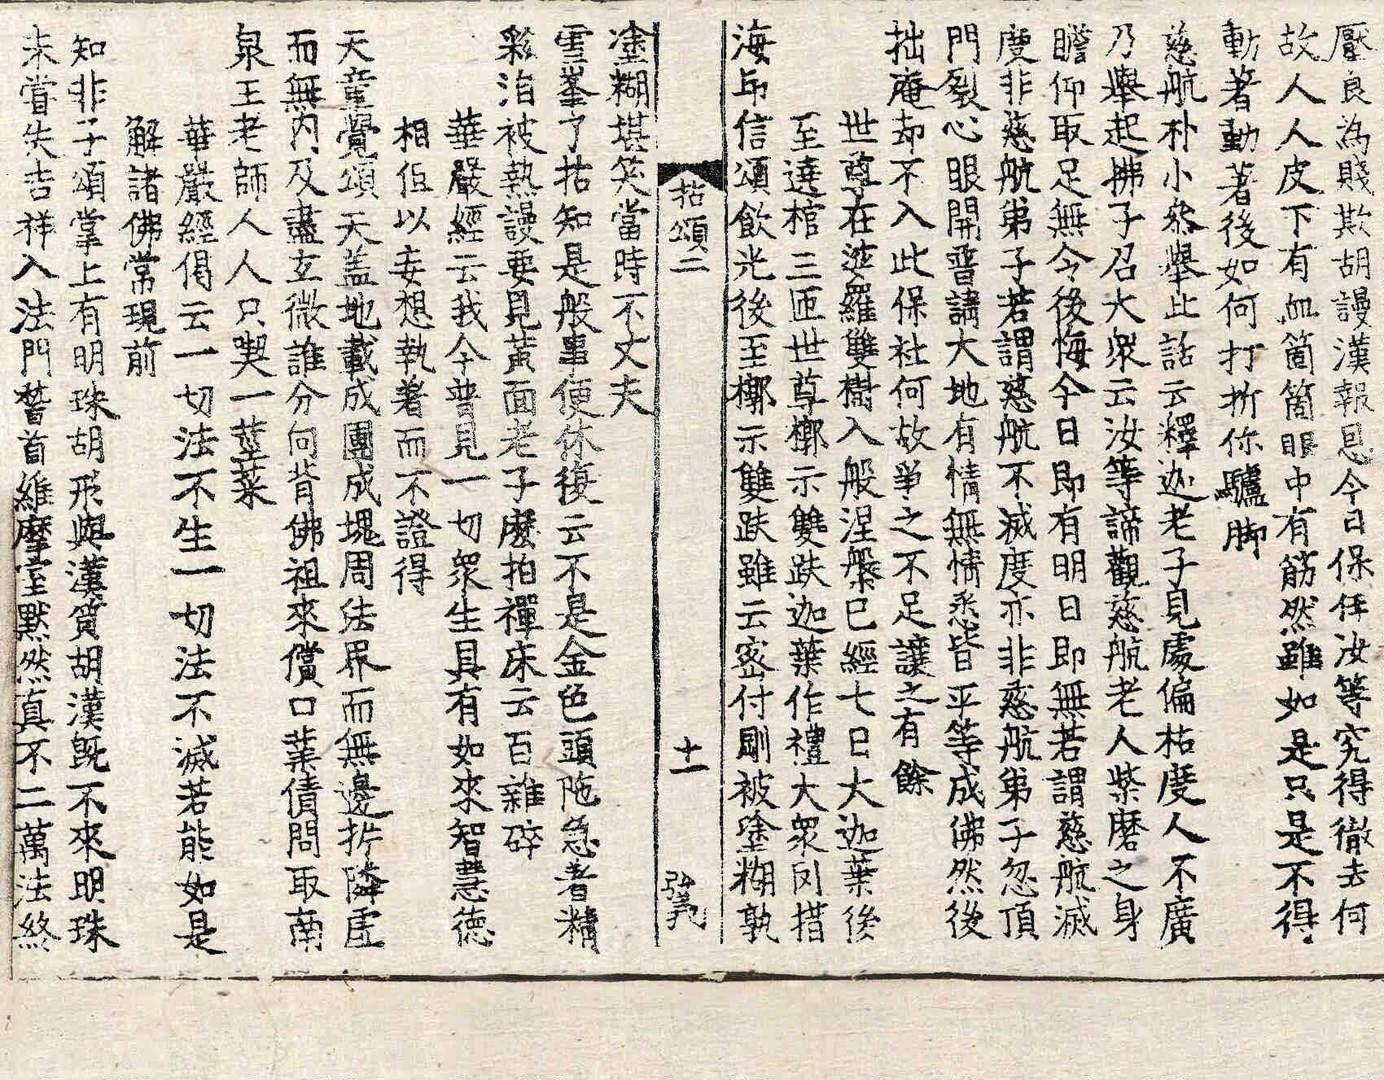 壓良為賤欺胡謾漢報恩今日保任汝等究得徹去何
故人人皮下有血箇箇眼中有筋然雖如是只是不得
動著動著後如何打折你驢脚
慈航朴小叅舉此話云釋迦老子見處偏枯度人不廣
乃舉起拂子召大衆云汝等諦觀慈航老人紫磨之身
瞻仰取足無令後悔今日即有明日即無若謂慈航滅
度非慈航弟子若謂慈航不滅度亦非慈航弟子忽頂
門裂心眼開普請大地有情無情悉皆平等成佛然後
拙庵却不入此保社何故爭之不足讓之有餘
世尊在娑羅雙樹入般涅槃已經七日大迦葉後
至遶棺三匝世尊槨示雙趺迦葉作禮大衆罔措
海印信頌飮光後至槨示雙趺雖云密付剛被塗糊孰
拈頌二
十一
塗糊堪笑當時不丈夫
雪峯了拈知是般事便休復云不是金色頭陁急著精
彩洎被熱謾要見黃面老子麽拍禪床云百雜碎
華嚴經云我今普見一切衆生具有如來智慧德
相但以妄想執著而不證得
天童覺頌天盖地載成團成塊周法界而無邊折隣虛
而無內及盡玄微誰分向背佛祖來償口業債問取南
泉王老師人人只喫一莖菜
華嚴經偈云一切法不生一切法不滅若能如是
解諸佛常現前
知非子頌掌上有明珠胡形與漢質胡漢旣不來明珠
未嘗失吉祥入法門稽首維摩室默然真不二萬法終